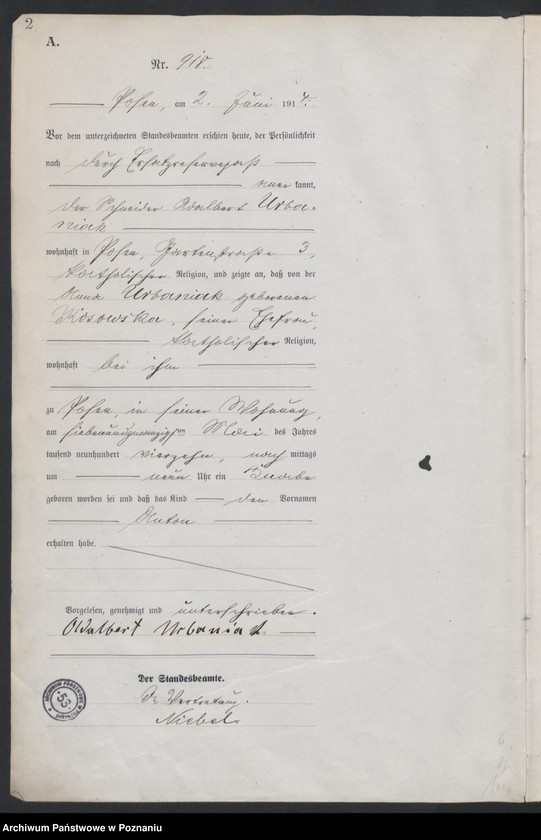 2
A.
Nr. 918.
Posen, am 2. Juni 1914.
Vor dem unterzeichneten Standesbeamten erschien heute, der Persönlichkeit
nach durch Ersatzreservepaß
aner kannt,
der Schneider Adalbert Urba-
niak
wohnhaft in Posen, Gartenstraße 3,
katholischer Religion, und zeigte an, daß von der
Anna Urbaniak geborenen
Kosowska, seiner Ehefrau,
katholischer Religion,
wohnhaft bei ihm
zu Posen, in seiner Wohnung,
am siebenundzwanzigsten Mai des Jahres
tausend neunhundert vierzehn, nach mittags
um neun Uhr ein Knabe
geboren worden sei und daß das Kind den Vornamen
Anton
erhalten habe.
Vorgelesen, genehmigt und unterschrieben.
Adalbert Urbaniak.
Der Standesbeamte.
In Vertretung.
Niebel
ARCHIWUM PAŃSTWOWE W POZNANIU
53
Archiwum Państwowe w Poznaniu